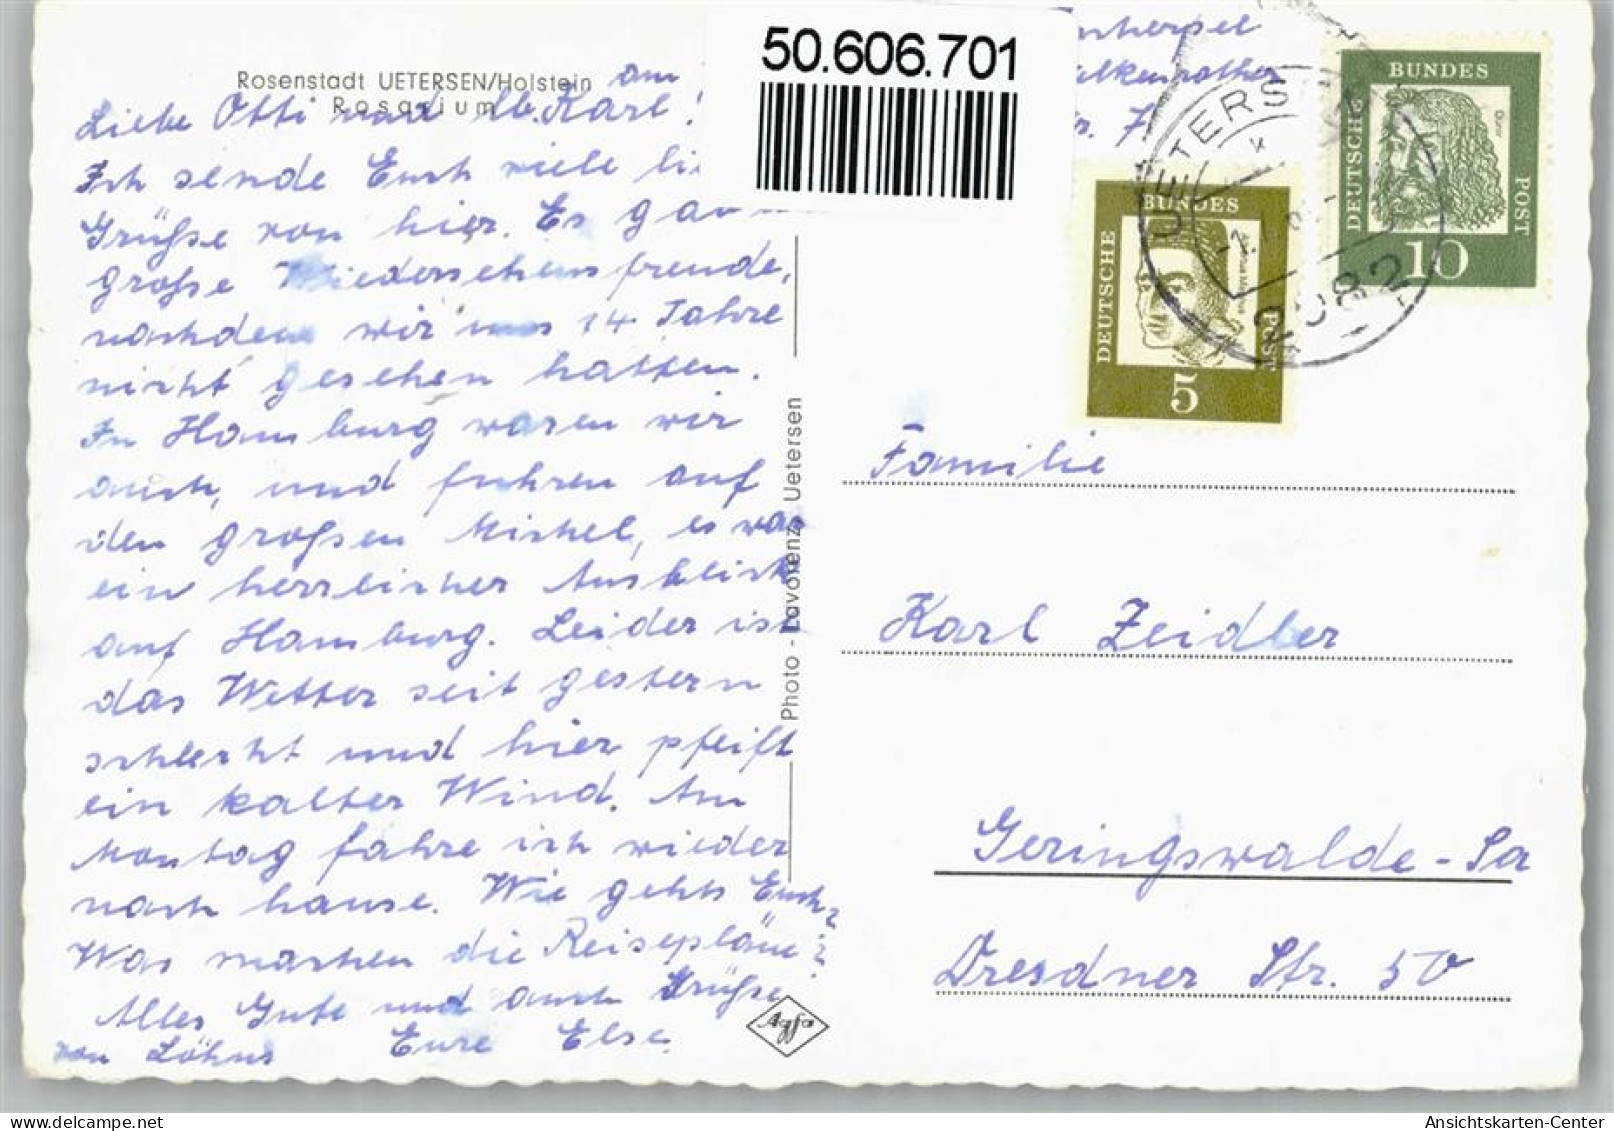 50.606.701
Rosenstadt UETERSEN/Holstein
Rosarium
am
Liebe Otti und lb. Karl!
Ich sende Euch viele li
Grüße von hier. Es gab
große Wiedersehensfreude,
nachdem wir uns 14 Jahre
nicht gesehen hatten.
In Hamburg waren wir
auch, und fuhren auf
den großen Michel, es war
ein herrlicher Ausblick
auf Hamburg. Leider ist
das Wetter seit gestern
schlecht und hier pfeift
ein kalter Wind. Am
Montag fahre ich wieder
nach hause. Wie gehts Euch?
Was machen die Reisepläne?
Alles Gute und auch Grüße
von Löhns Eure Else.
Photo - Lavorenz Uetersen
Agfa
alkenrother
tr. 7
UETERS
2082
DEUTSCHE
BUNDES
POST
5
DEUTSCHE
BUNDES
POST
10
Familie
Karl Zeidler
Geringswalde-Sa
Dresdner Str. 50
Ansichtskarten-Center